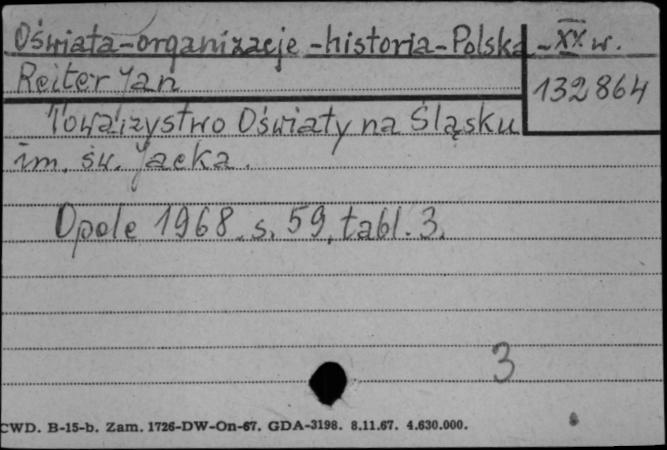 Oświata-organizacje-historia-Polska-XX w.
Reiter Jan
132864
Towarzystwo Oświaty na Śląsku
im. św. Jacka.
Opole 1968. s. 59, tabl. 3.
3
CWD. B-15-b. Zam. 1726-DW-On-67. GDA-3198. 8.11.67. 4.630.000.